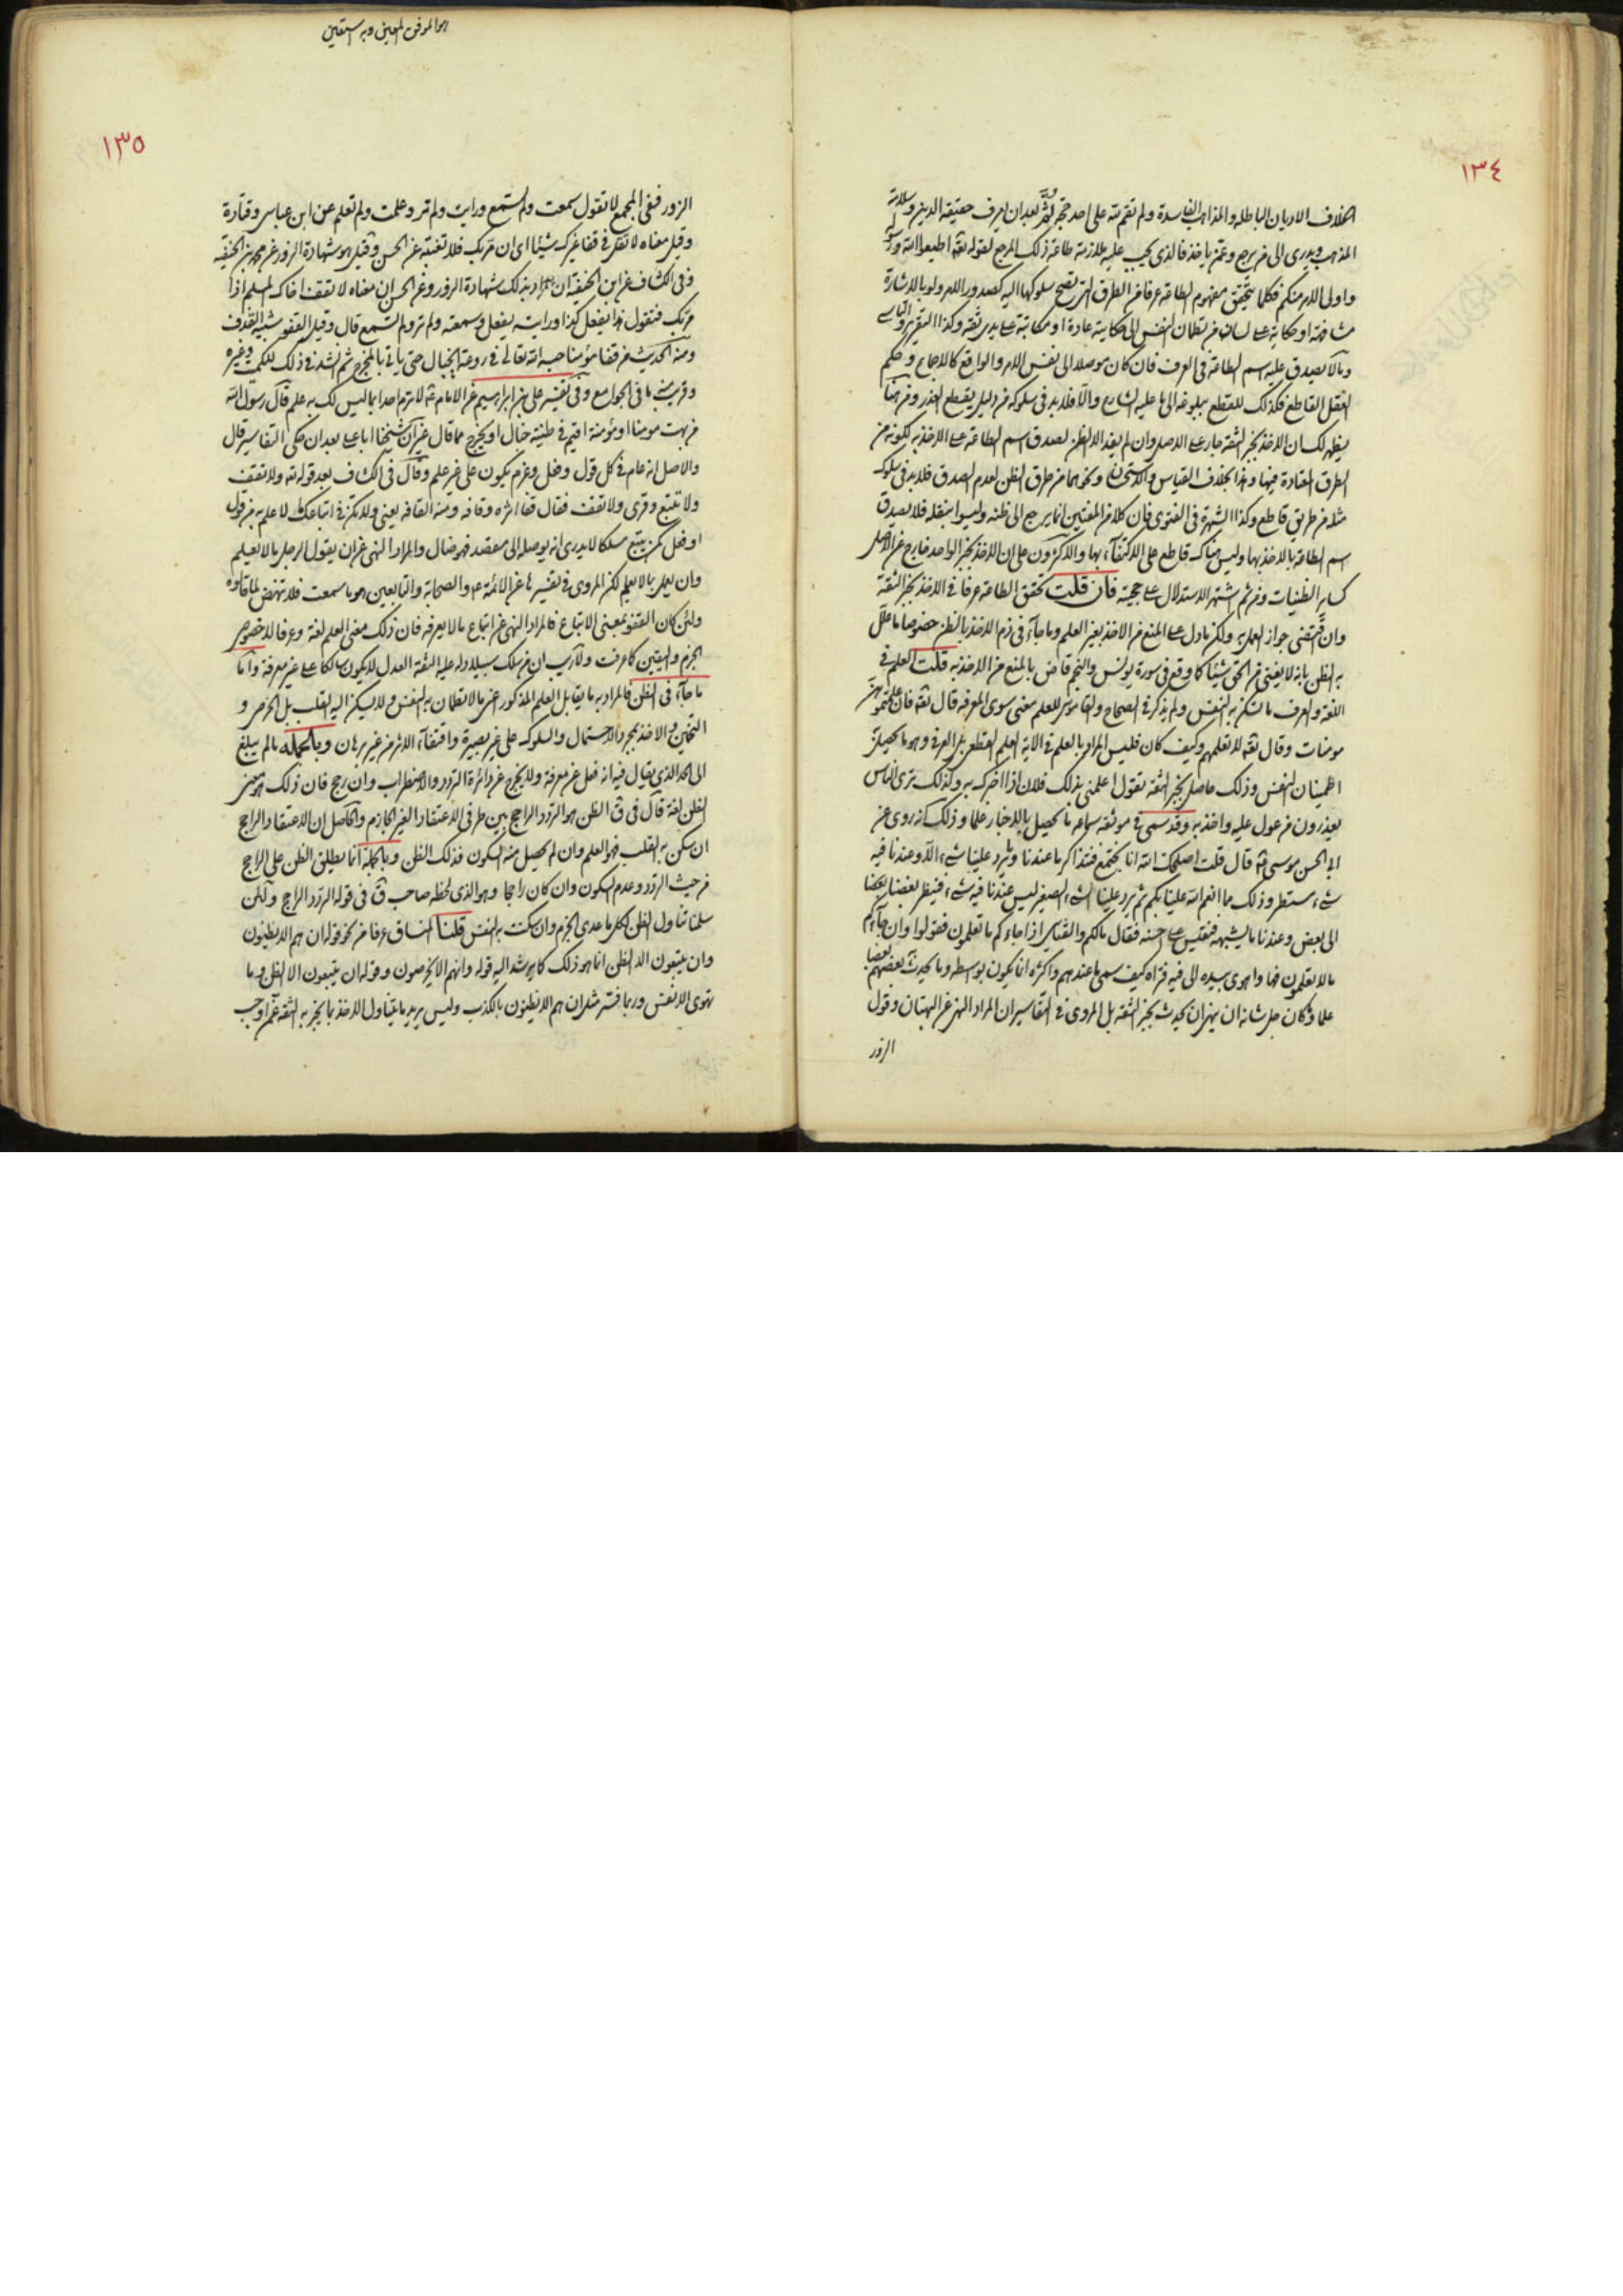 ١٣٤
الخلاف الاديان الباطلة والمذاهب الفاسدة ولم تقم منه على احد حجة بعد ان يعرف حقيقة الدين وسلامة
المذهب ويدرى الى من يرجع وعمن ياخذ فالذى يجب عليه ملازمة طاعة ذلك المرجع لقوله تعالى اطيعوا الله
واولى الامر منكم فكلما يتحقق مفهوم الطاعة عرفا من الطرق التى تصح سلوكها اليه كصدور الامر ولو بالاشارة
مشافهة او حكاية على لسان من تطمان النفس الى حكايته عادة او مكاتبة على يدى ثقة وكذا التقرير
ومالا يصدق عليه اسم الطاعة فى العرف فان كان موصلا الى نفس الامر والواقع كالاجماع وحكم
العقل القاطع فكذلك للقطع ببلوغه الى ما عليه الشارع والا فلا بد فى سلوكه من دليل يقطع العذر ومن هنا
يظهر لك ان الاخذ بخبر الثقة جار على الاصل وان لم يفد الا الظن لصدق اسم الطاعة على الاخذ به لكونه من
الطرق المعتادة فيها وهذا بخلاف القياس والاستحسان ونحوهما من طرق الظن لعدم الصدق فلا بد فى سلوك
مثله من طريق قاطع وكذا الشهرة فى الفتوى فان كلا من المفتين انما يرجع الى ظنه وليسوا بنقله فلا يصدق
اسم الطاعة بالاخذ بها وليس هناك قاطع على الاكتفاء بها والاكثرون على ان الاخذ بخبر الواحد خارج عن الاصل
كساير الظنيات ومن ثم اشتهر الاستدلال على حجيته فان قلت تحقق الطاعة عرفا فى الاخذ بخبر الثقة
وان اقتضى جواز العمل به ولكن ما دل على المنع من الاخذ بغير العلم وما جاء فى ذم الاخذ بالظن خصوصا ما علل
به الظن بانه لا يغنى من الحق شيئا كما وقع فى سورة يونس والنجم قاض بالمنع من الاخذ به قلت العلم فى
اللغة والعرف ما تسكن به النفس ولم يذكر فى الصحاح والقاموس للعلم معنى سوى المعرفة قال تعالى فان علمتموهن
مومنات وقال تعالى لا تعلمهم وكيف كان فليس المراد بالعلم فى الاية العلم القطعى بل العرفى وهو ما يحصل به
اطمينان النفس وذلك حاصل بخبر الثقة تقول اعلمنى بذلك فلان اذا اخبرك به ولذلك ترى الناس
يعذرون من عول عليه واخذ به وقد سمى فى موثقة سماعة ما يحصل بالاخبار علما وذلك انه روى عن
ابى الحسن موسى قال قلت اصلحك الله انا نجتمع فنتذاكر ما عندنا وما يرد علينا شىء الا وعندنا فيه
شىء مستطر وذلك مما انعم الله علينا بكم ثم يرد علينا الشىء الصغير ليس عندنا فيه شىء فينظر بعضنا
الى بعض وعندنا ما يشبهه فنقيس على احسنه فقال مالكم والقياس اذا جاءكم ما تعلمون فقولوا وان جاءكم
مالا تعلمون فها واهوى بيده الى فيه فتراه كيف سمى ما عندهم واكثره انما يكون بوسطه وما يحدث بعضهم بعضا
علما وكان جل شانه ان ينهى ان يحدث بخبر الثقة بل المروى فى التفاسير ان المراد النهى عن البهتان وقول
الزور
هو الموفق المعين وبه استعين
١٣٥
الزور ففى المجمع لا تقول سمعت ولم تسمع ورايت ولم تر وعلمت ولم تعلم عن ابن عباس وقتادة
وقيل معناه لا تقل فى قفا غيرك شيئا اى ان مر بك فلا تغتبه عن الحسن وقيل هو شهادة الزور عن محمد بن الحنفية
وفى الكشاف عن ابن الحنفية ان المراد بذلك شهادة الزور وعن الحسن ان معناه لا تقف اخاك المسلم اذا
مر بك فتقول هذا يفعل كذا ورايته يفعل وسمعته ولم تر ولم تسمع قال وقيل القفو شبيه القذف
ومنه الحديث من قفا مؤمنا حبسه الله تعالى فى ردغة الخبال حتى ياتى بالمخرج ثم انشد فى ذلك للكميت وغيره
وقريب منه ما فى الجوامع وفى تفسير على بن ابراهيم عن الامام لا ترم احدا بما ليس لك به علم قال رسول الله
من بهت مومنا او مؤمنة اقيم فى طينة خبال او يخرج مما قال غير ان شيخنا ابا على بعد ان حكى التفاسير قال
والاصل انه عام فى كل قول وفعل وعزم يكون على غير علم وقال فى الكشاف بعد قوله تعالى ولا تقف
ولا تتبع وقرى ولا تقف فقال قفا اثره وقافه ومنه القافه يعنى ولا تكن فى اتباعك لما لا علم به من قول
او فعل كمن يتبع مسلكا لا يدرى انه يوصله الى مقصد فهو ضال والمراد النهى عن ان يقول الرجل ما لا يعلم
وان يعمل بما لا يعلم لكن المروى فى تفسيرها عن الائمة والصحابة والتابعين هو ما سمعت فلا تنهض لما قالوه
ولئن كان القفو بمعنى الاتباع فالمراد النهى عن اتباع ما لا يعرفه فان ذلك معنى العلم لغة وعرفا لا خصوص
الجزم واليقين كما عرفت ولا ريب ان من سلك سبيلا دله عليه الثقة العدل لا يكون سالكا على غير معرفة واما
ما جاء فى الظن فالمراد به ما يقابل العلم المذكور اعنى مالا تطمان به النفس ولا يسكن اليه القلب بل الخرص و
التخمين والاخذ بمجرد الاحتمال والسلوك على غير بصيرة واقتفاء الاثر من غير برهان وبالجمله مالم يبلغ
الى الحد الذى يقال فيه انه فعل عن معرفة ولا يخرج عن دائرة التردد والاضطراب وان رجح فان ذلك هو معنى
الظن لغة قال فى ق الظن هو التردد الراجح بين طرفى الاعتقاد الغير الجازم والحاصل ان الاعتقاد الراجح
ان سكن به القلب فهو العلم وان لم يحصل منه السكون فذلك الظن وبالجملة انما يطلق الظن على الراجح
من حيث التردد وعدم السكون وان كان راجحا وهو الذى لحظه صاحب ق فى قوله التردد الراجح ولئن
سلمنا تناول الظن لكل ما عدى الجزم وان سكنت به النفس قلنا المنساق عرفا من نحو قوله ان هم الا يظنون
وان يتبعون الا الظن انما هو ذلك كما يرشد اليه قوله وان هم الا يخرصون وقوله ان يتبعون الا الظن وما
تهوى الانفس وربما فسر مثل ان هم الا يظنون بالكذب وليس يريد ما يتناول الاخذ بما يخبر به الثقة عمن اوجب